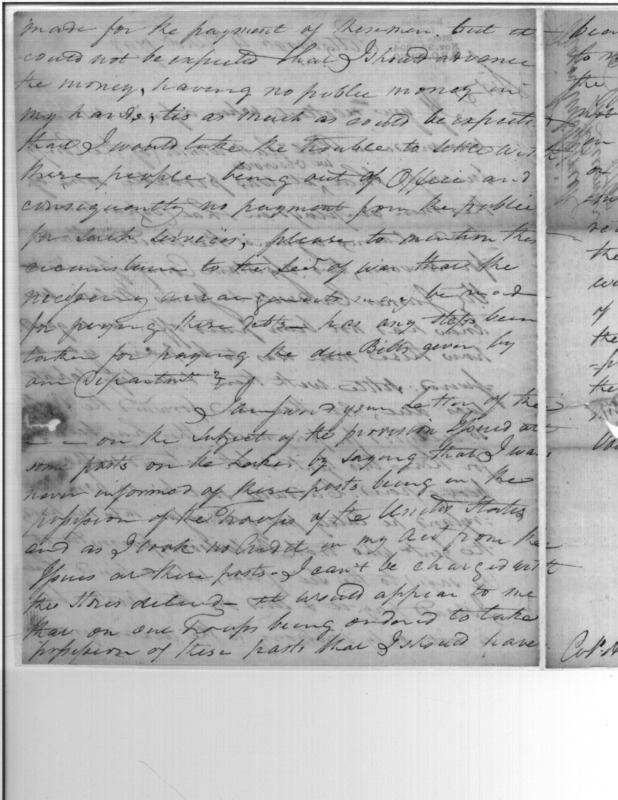 made for the payment of these men but it
could not be expected that I should advance
the money, having no public money in
my hands, tis as much as could be expected
that I would take the trouble to settle with
these people being out of Office and
consequently no payment from the public
for such services, please to mention this
circumstance to the Secy of War that the
necessary arrangements may be made
for paying these debts has any steps been
taken for paying the due Bills given by
our Departmt
I answered your Letter of the
on the Subject of the provision Issued at
some posts on the Lakes by saying that I was
never informed of these posts being in the
possession of the Troops of the United States
and as I took no Credit in my Acct from the
Issues at these posts I can't be charged with
the Stores delivd it would appear to me
that on our Troops being ordered to take
possession of these posts that I should have
the
of
the
the
Col.